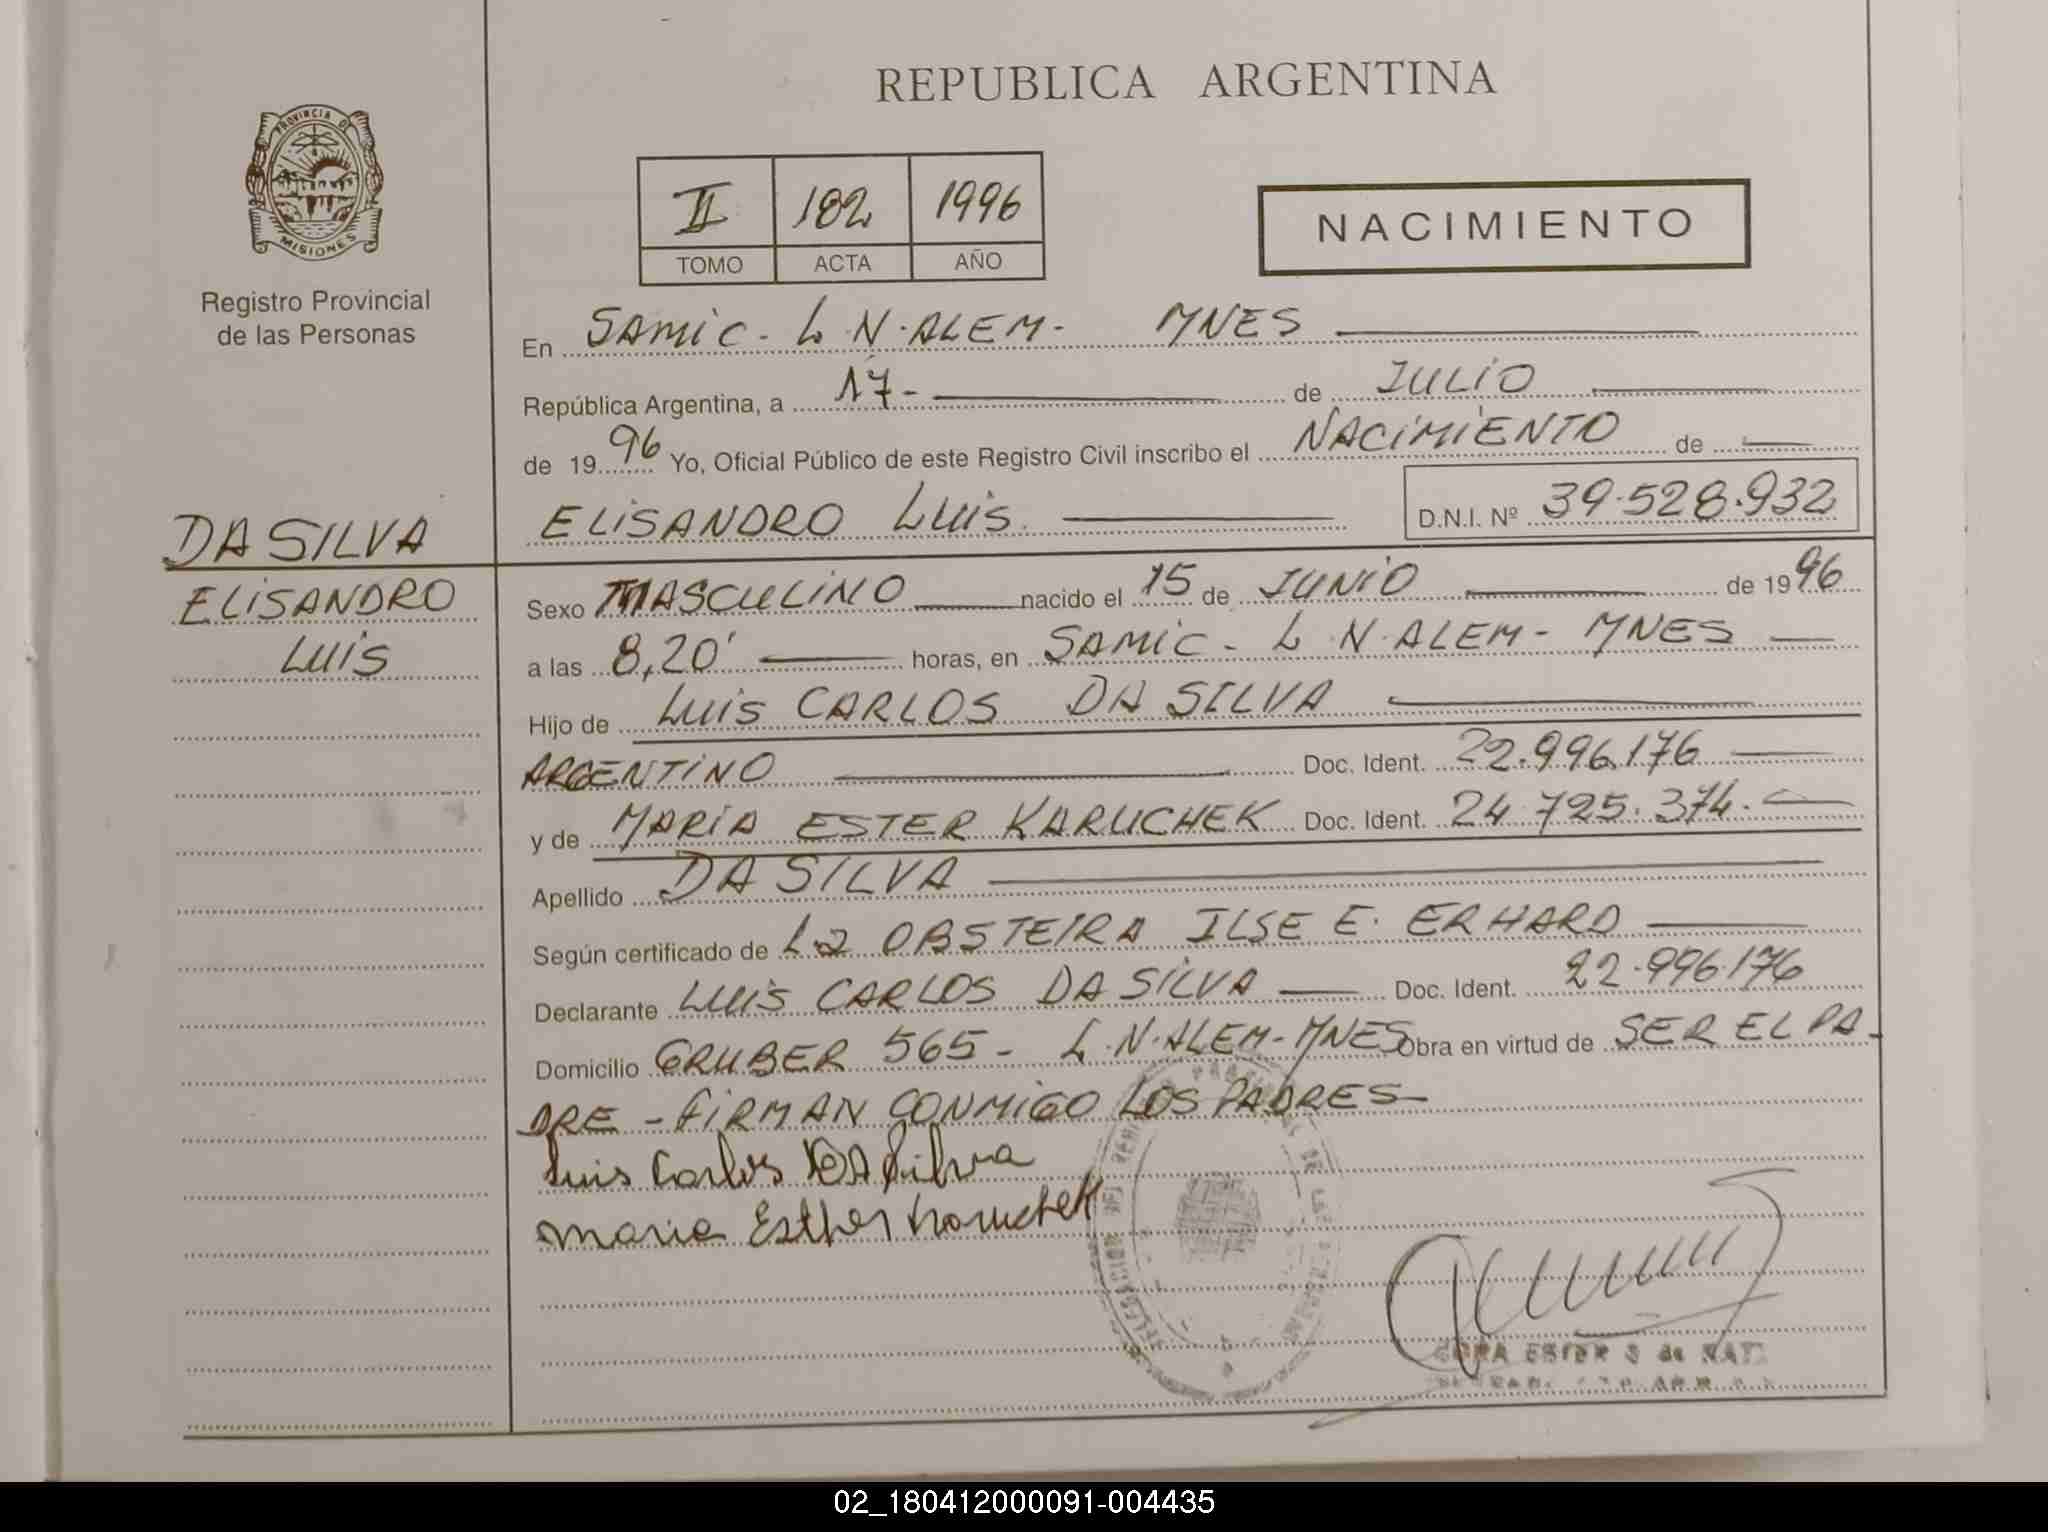 REPUBLICA ARGENTINA
PROVINCIA DE
MISIONES
Registro Provincial
de las Personas
II 182 1996
TOMO ACTA AÑO
NACIMIENTO
En SAMIC - L. N. ALEM - MNES
República Argentina, a 17 - de JULIO
de 1996 Yo, Oficial Público de este Registro Civil inscribo el NACIMIENTO de
ELISANDRO LUIS. D.N.I. Nº 39.528.932
DA SILVA
ELISANDRO
LUIS
Sexo MASCULINO nacido el 15 de JUNIO de 1996
a las 8,20' horas, en SAMIC - L. N. ALEM - MNES
Hijo de LUIS CARLOS DA SILVA
ARGENTINO Doc. Ident. 22.996.176
y de MARIA ESTER KARUCHEK Doc. Ident. 24.725.374.
Apellido DA SILVA
Según certificado de La OBSTEIRA ILSE E. ERHARD
Declarante LUIS CARLOS DA SILVA Doc. Ident. 22.996.176
Domicilio GRUBER 565 - L. N. ALEM - MNES Obra en virtud de SER EL PA-
DRE - FIRMAN CONMIGO LOS PADRES
Luis Carlos DA Silva
Maria Esther Karuchek
ESTER S de
02_180412000091-004435